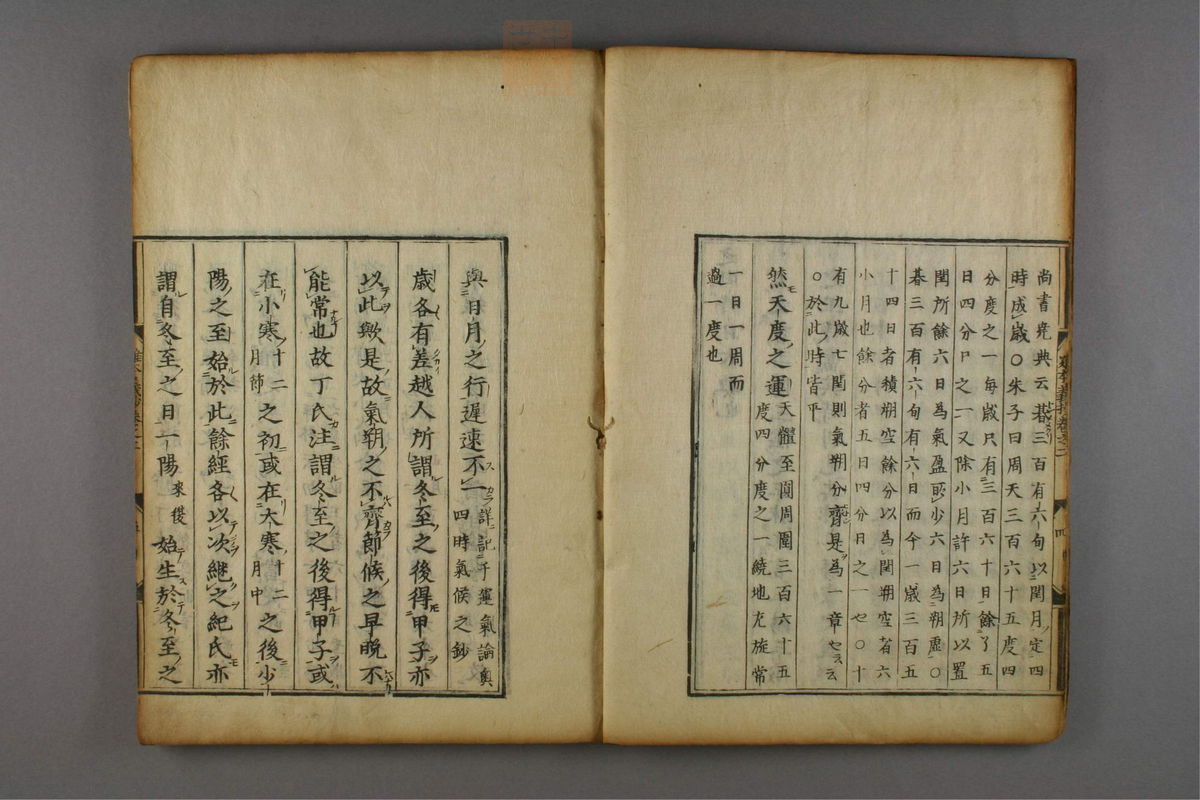 尚書堯典云朞三百有六旬以閏月定四
時成歲〇朱子曰周天三百六十五度四
分度之一每歲只有三百六十日餘了五
日四分日之一又除小月許六日所以置
閏所餘六日為氣盈所少六日為朔虛〇
朞三百有六旬有六日而今一歲三百五
十四日者積朔空餘分以為閏朔空者六
小月也餘分者五日四分日之一也〇十
有九歲七閏則氣朔分齊是為一章也云云
〇於此時皆平
然天度之運天體至圓周圍三百六十五
度四分度之一繞地左旋常
一日一周而
過一度也
與日月之行遲速不一詳記于運氣論奧
四時氣候之鈔
歲各有差越人所謂冬至之後得甲子亦
以此歟是故氣朔之不齊節候之早晚不
能常也故丁氏注謂冬至之後得甲子或
在小寒十二月節之初或在大寒十二月中之後少
陽之至始於此餘經各以次繼之紀氏亦
謂自冬至之日一陽來復始生於冬至之